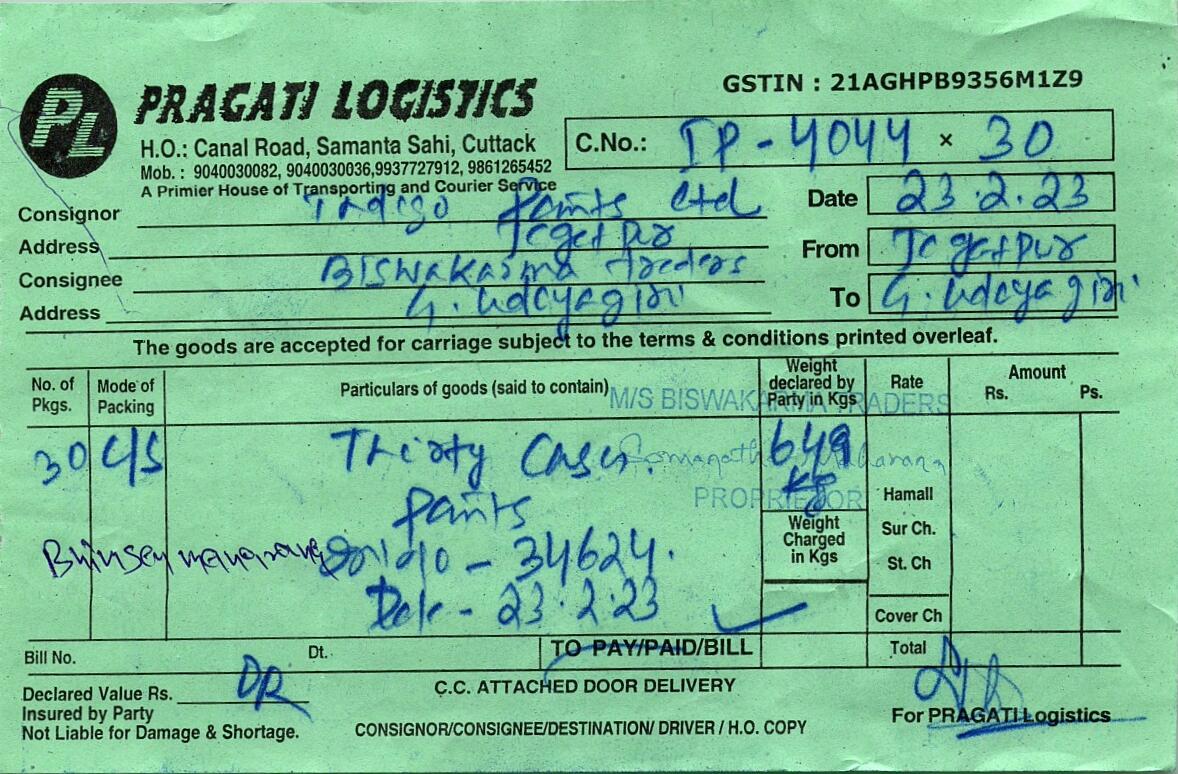 GSTIN : 21AGHPB9356M1Z9
PL PRAGATI LOGISTICS
H.O.: Canal Road, Samanta Sahi, Cuttack
Mob. : 9040030082, 9040030036,9937727912, 9861265452
A Primier House of Transporting and Courier Service
C.No.: IP - 4044 × 30
Consignor Indigo Paints Ltd
Date 23.2.23
Address Jegatpur
From Jegatpur
Consignee Biswakarma Traders
Address G. Udayagiri
To G. Udayagiri
The goods are accepted for carriage subject to the terms & conditions printed overleaf.
No. of Pkgs. Mode of Packing Particulars of goods (said to contain) Weight declared by Party in Kgs Rate Amount Rs. Ps.
M/S BISWAKARMA TRADERS
30 C/S Thirty Cases. 649 kg
PROPRIETOR
Hamall
Paints
Weight Charged in Kgs
Sur Ch.
St. Ch
- 34624.
Date - 23.2.23
Cover Ch
Bill No. Dt. TO PAY/PAID/BILL Total
Declared Value Rs. DR
C.C. ATTACHED DOOR DELIVERY
Insured by Party
Not Liable for Damage & Shortage.
CONSIGNOR/CONSIGNEE/DESTINATION/ DRIVER / H.O. COPY
For PRAGATI Logistics